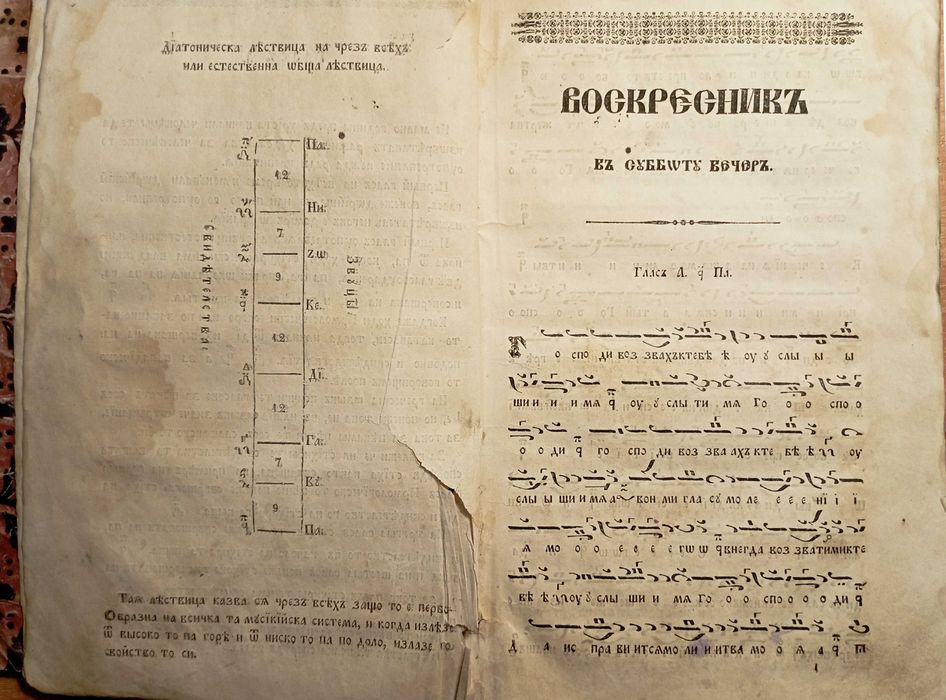 Дїатоническа лѣствица на чрезъ всѣхъ
или естественна ѡбща лѣствица.
Па.
12
Ни.
7
Zѡ
9
Ке.
12
Дї.
12
Га.
7
Вꙋ.
9
Па.
свидѣтелства
Звꙋцы
Таѧ лѣствица казва сѧ чрезъ всѣхъ защо то е перво-
Образна на всичка та мꙋсїкїйска система, и когда излѣзе
ѿ высоко то на горѣ и ѿ ниско то па по доло, излазе го
свойство то си.
ВОСКРЕСНИКЪ
ВЪ СꙊББѠТꙊ ВЕЧЕРЪ.
Гласъ А. Па.
Г о спо ди воз звахъ к тебѣ ѣ оу ꙋ слы ы ы
ши и и имѧ оу ꙋ слы ти мѧ Го о о спо о
о о ди го спо ди воз зва ахъ к те бѣ ѣ оу
слы ы ши и мѧ а вон ми гла сꙋ мо ле е е е нї ї ї
ѧ мо о о е е е е гѡ ѡ внегда воз звати ми к те
бѣ ѣ оу ꙋ слы ши и мѧ Го о о спо о о о ди
Д а а ис пра ви итсѧ мо ли и итва мо о ѧ а
1